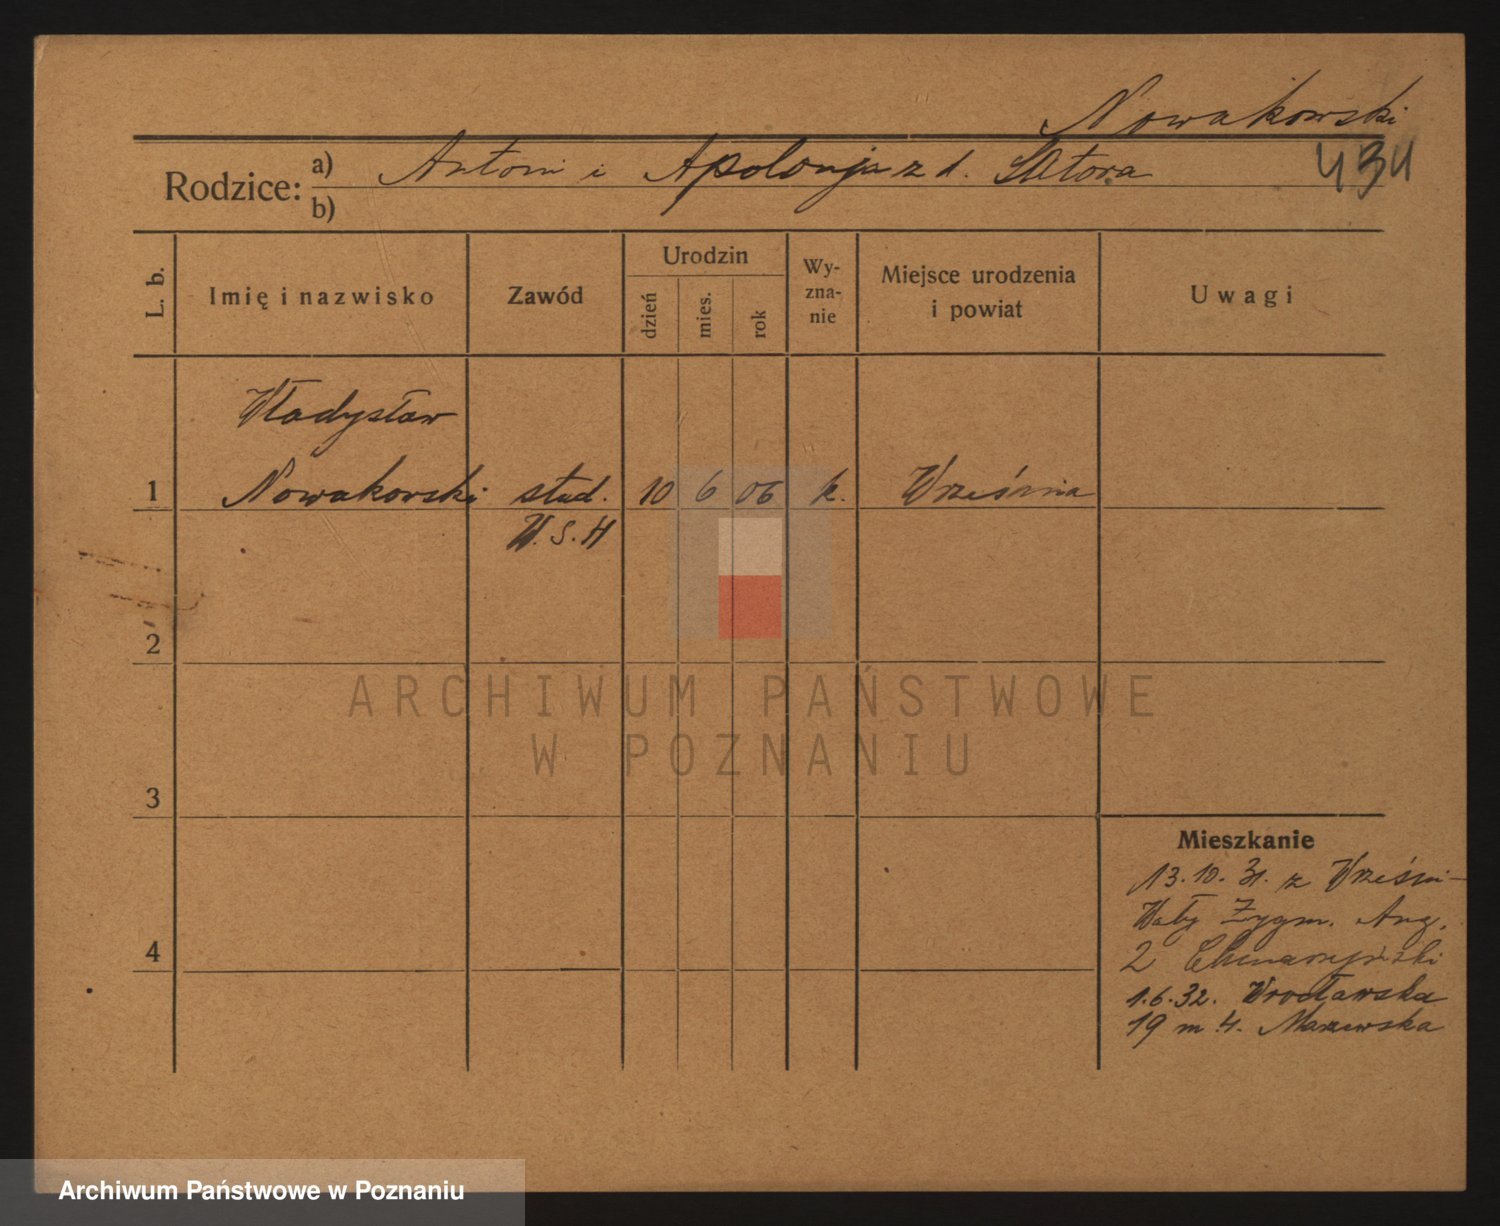 Nowakowski
434
Rodzice: a) Antoni i Apolonja z d. Sotora
b)
L. b.
Imię i nazwisko
Zawód
Urodzin
dzień
mies.
rok
Wy-
zna-
nie
Miejsce urodzenia
i powiat
Uwagi
Władysław
1 Nowakowski stud. 10 6 06 k. Września
W.S.H
2
ARCHIWUM PAŃSTWOWE
W POZNANIU
3
4
Mieszkanie
13.10.31. z Wrześni
Wały Zygm. Aug.
2
1.6.32. Wrocławska
19 m 4. Mazurska
Archiwum Państwowe w Poznaniu